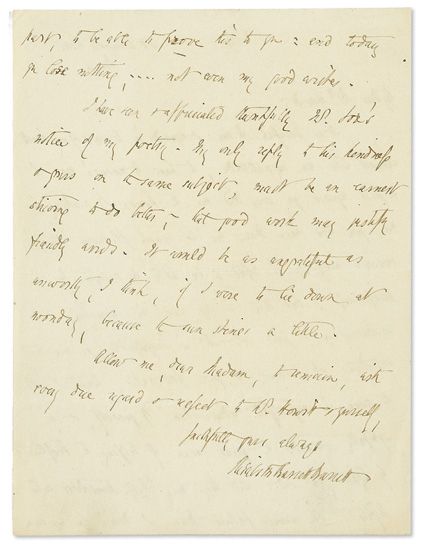 part, to be able to prove this to you: and today
you lose nothing, .... not even my good wishes.
I have seen & appreciated thankfully Mr. Fox's
notice of my poetry. My only reply to his kindness
& yours on the same subject, must be an earnest
striving to do better, that good work may justify
friendly words. It would be as ungrateful as
unworthy, I think, if I were to lie down at
noonday, because the sun shines a little.
Allow me, dear Madam, to remain, with
every due regard & respect to Mr. Howitt & yourself,
faithfully yours always
Elizabeth Barrett Barrett